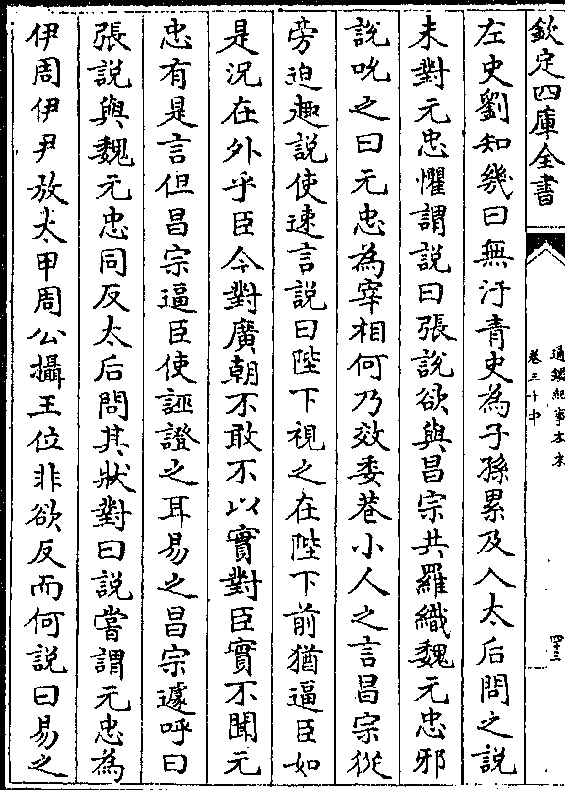 欽定四庫全書
通鑑紀事本末
卷三十中
四十三
左史劉知幾曰無汙青史為子孫累及入太后問之說
未對元忠懼謂說曰張說欲與昌宗共羅織魏元忠邪
說叱之曰元忠為宰相何乃效委巷小人之言昌宗從
旁迫趣說使速言說曰陛下視之在陛下前猶逼臣如
是況在外乎臣今對廣朝不敢不以實對臣實不聞元
忠有是言但昌宗逼臣使誣證之耳易之昌宗遽呼曰
張說與魏元忠同反太后問其狀對曰說嘗謂元忠為
伊周伊尹放太甲周公攝王位非欲反而何說曰易之